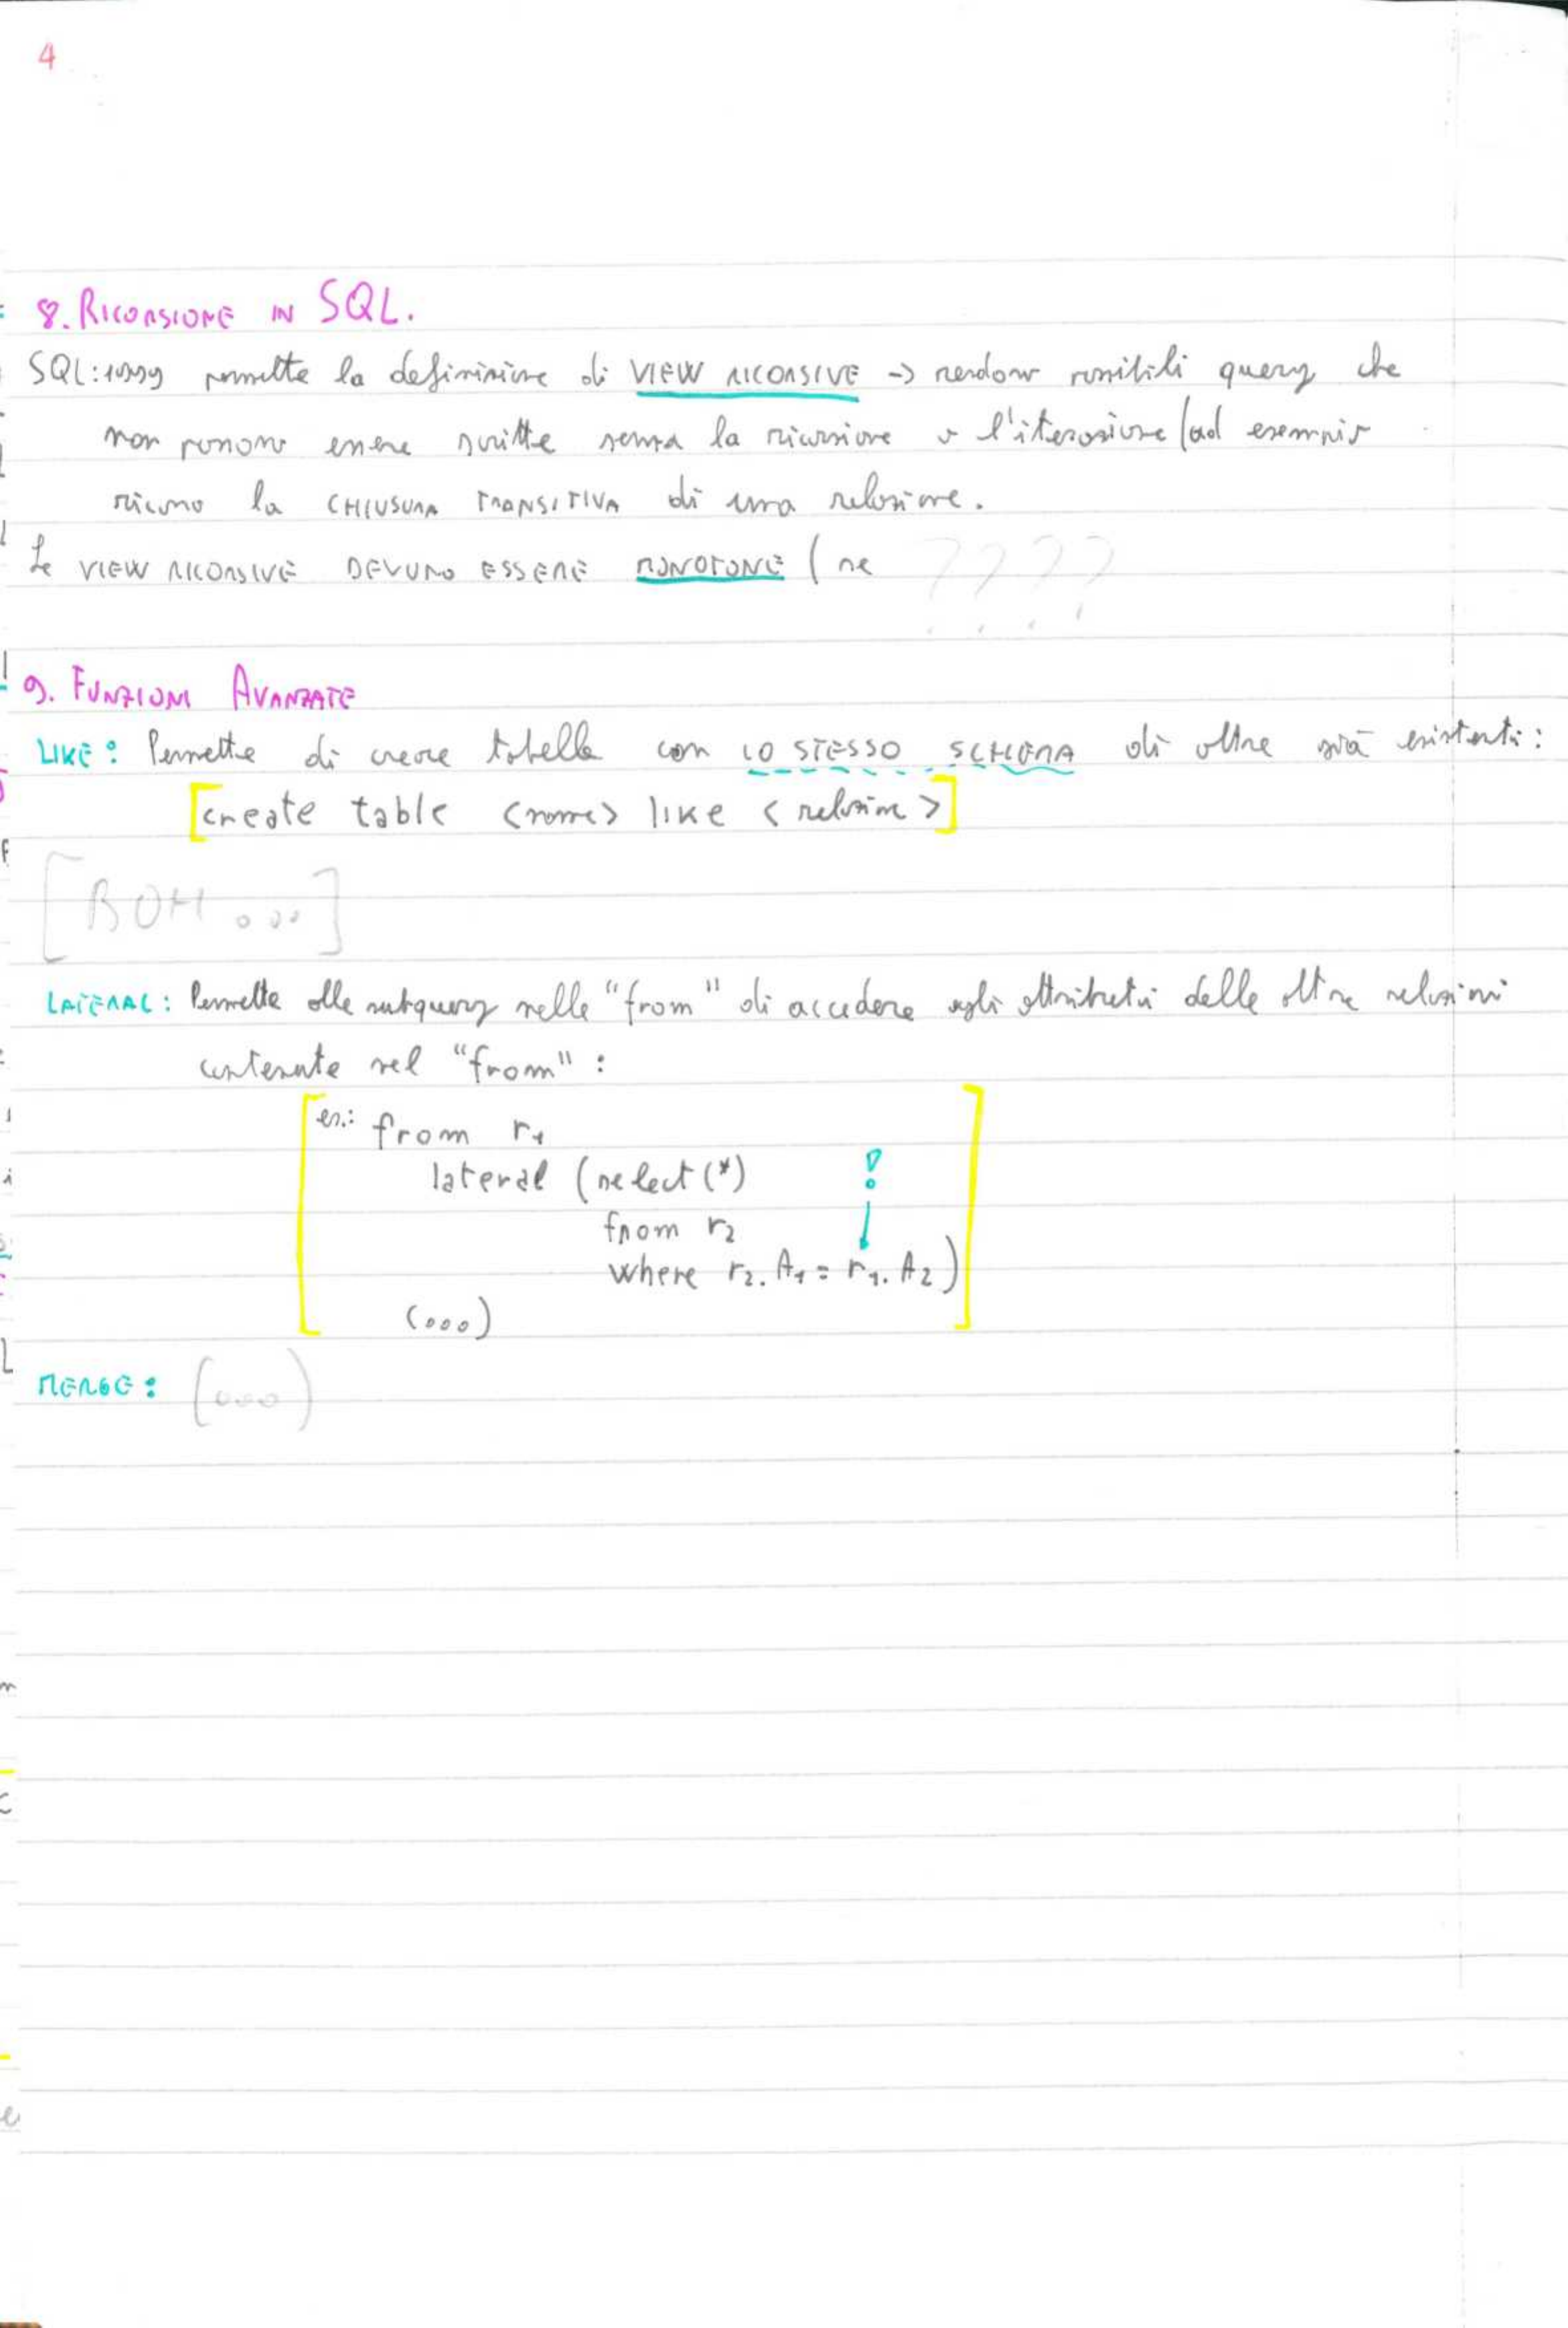 4
8. RICORSIONE IN SQL.
SQL:1999 permette la definizione di VIEW RICORSIVE -> rendono possibili query che
non possono essere scritte senza la ricorsione o l'iterazione (ad esempio
la CHIUSURA TRANSITIVA di una relazione.
Le VIEW RICORSIVE DEVONO ESSERE MONOTONE ( se ????
9. FUNZIONI AVANZATE
LIKE: Permette di creare tabelle con LO STESSO SCHEMA di altre già esistenti:
[create table <nome> like <relazione>]
[BOH ...]
LATERAL: Permette alle subquery nelle "from" di accedere agli attributi delle altre relazioni
contenute nel "from":
es.: from r1
lateral (select(*) !
from r2
where r2.A1 = r1.A2)
(...)
MERGE: (...)